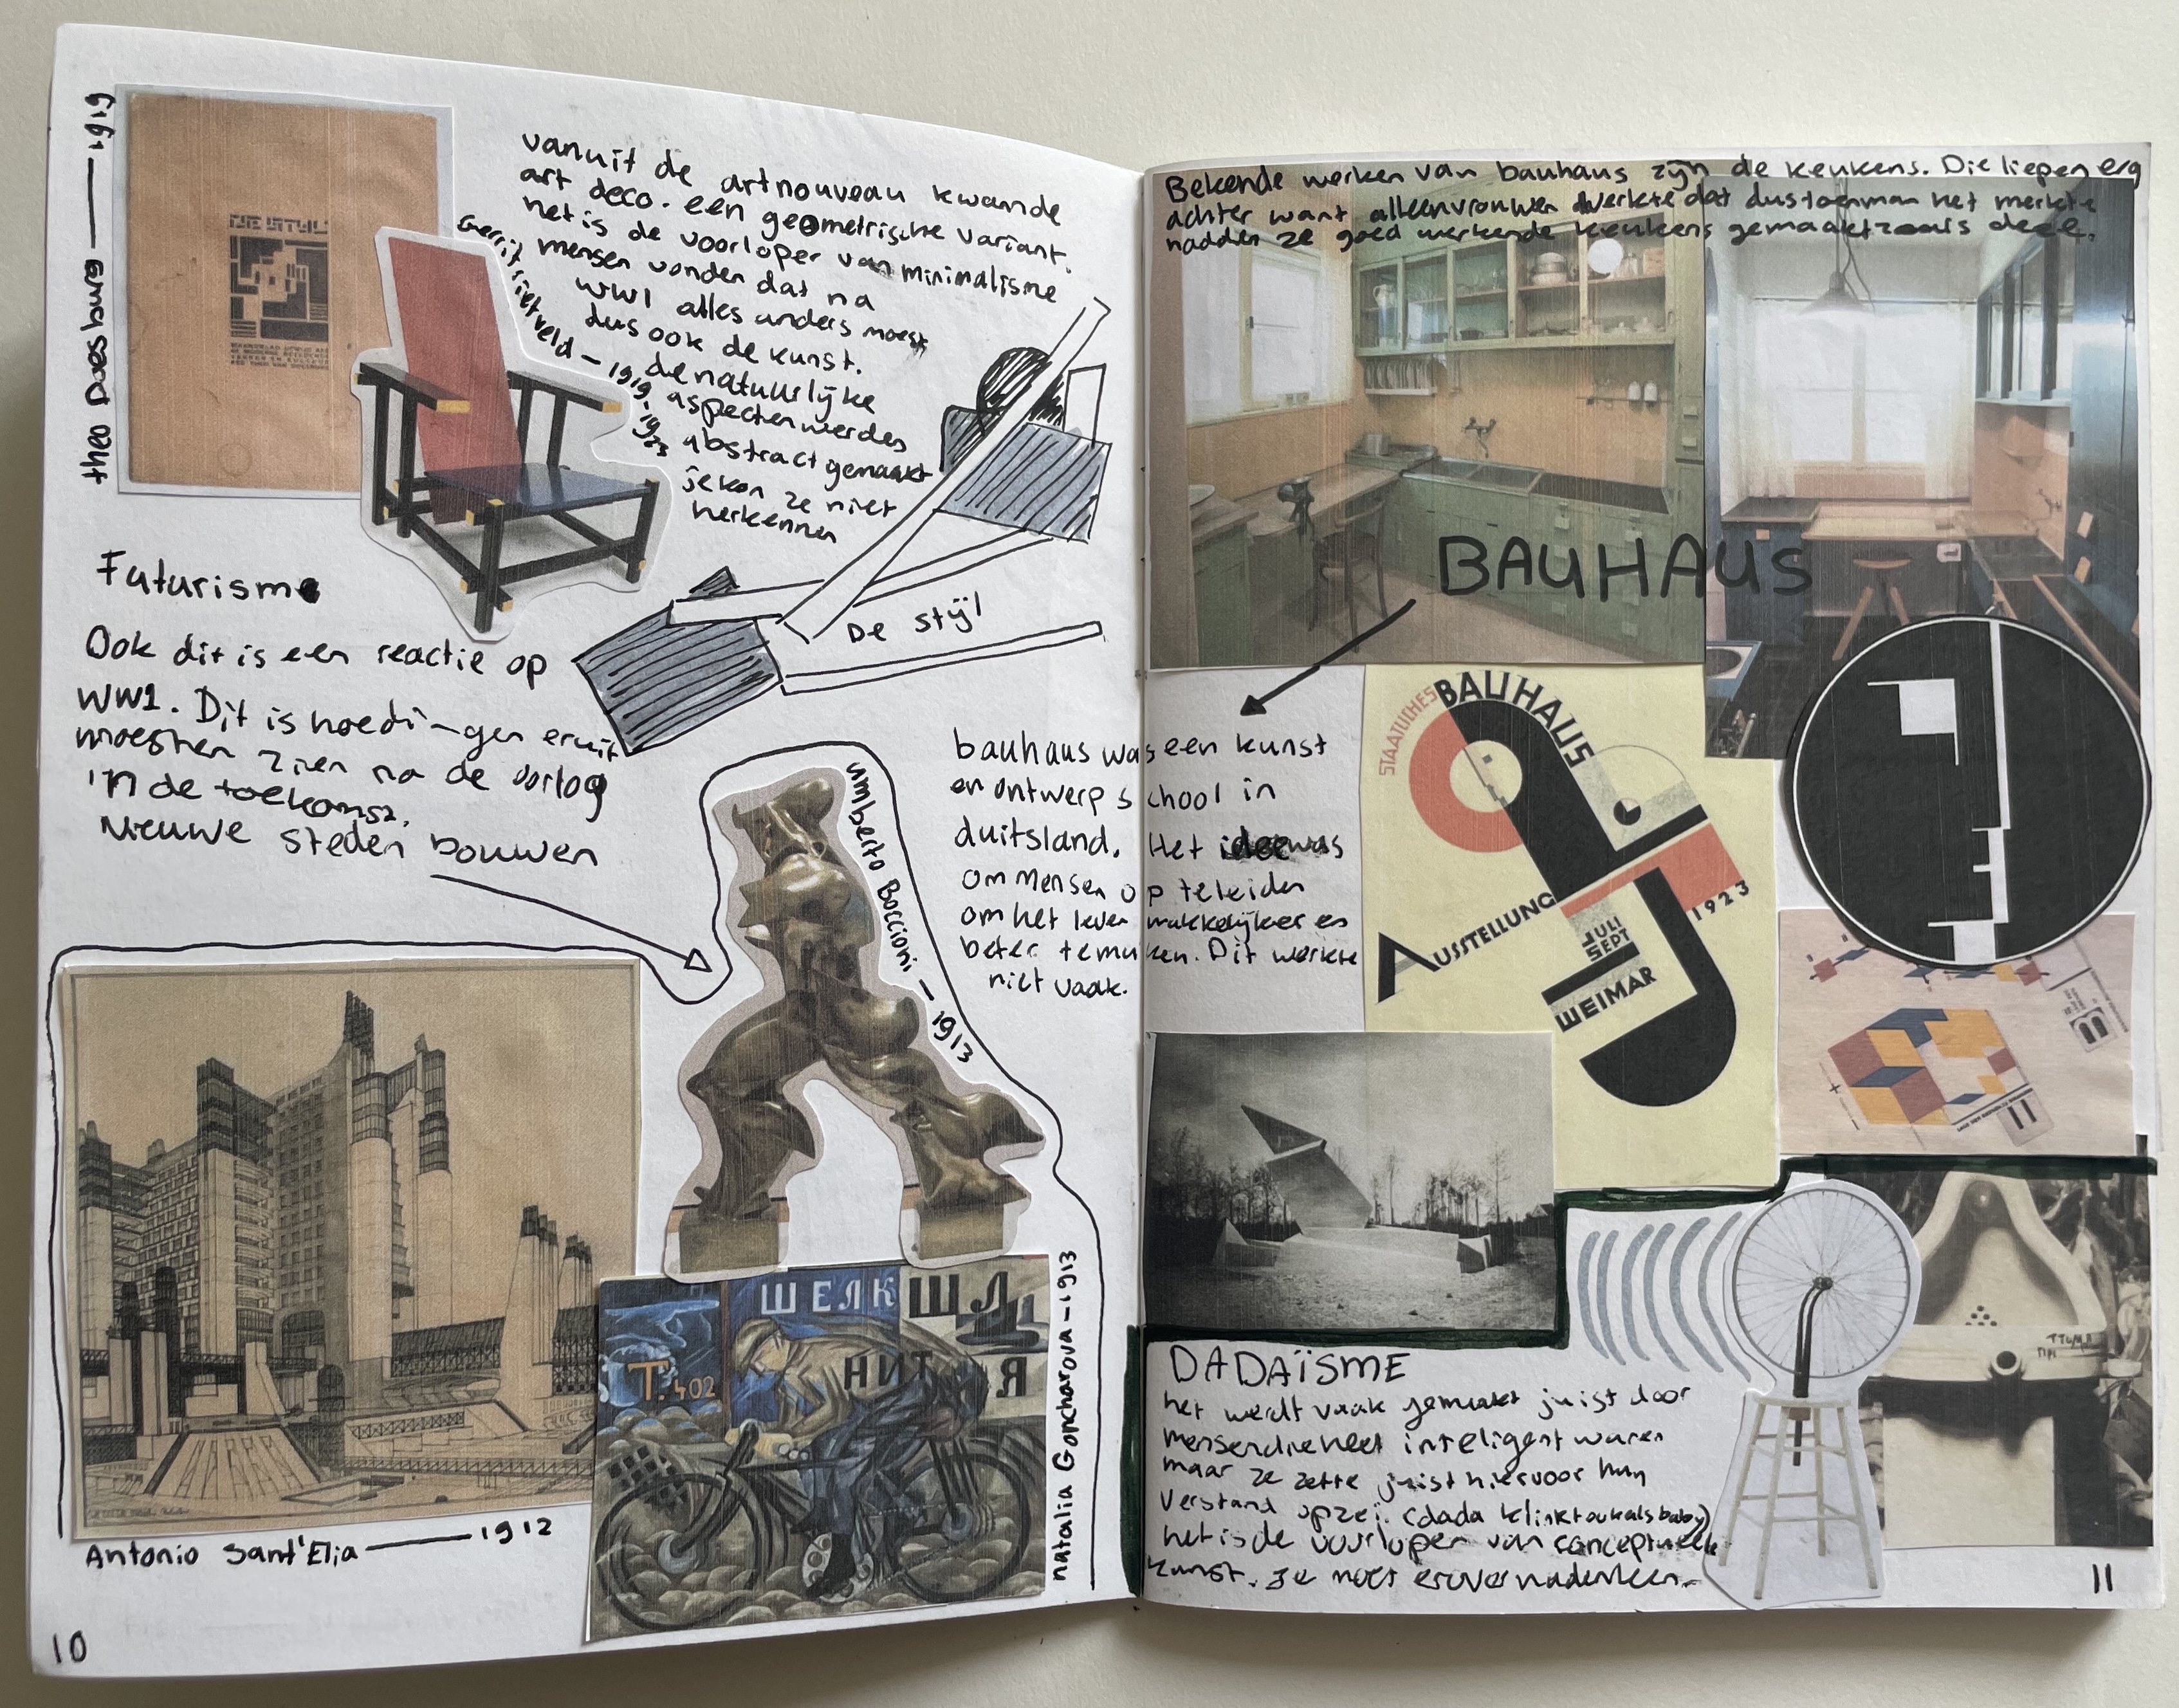 theo Doesburg — 1919
DE STIJL
vanuit de artnouveau kwamde
art deco. een geometrische variant.
het is de voorloper van minimalisme
mensen vonden dat na
WW1 alles anders moest
dus ook de kunst.
de natuurlijke
aspecten werden
abstract gemaakt
je kon ze niet
herkennen
Gerrit rietveld – 1919-1923
De stijl
Futurisme
Ook dit is een reactie op
WW1. Dit is hoe di-gen eruit
moesten zien na de oorlog
in de toekomst.
Nieuwe steden bouwen
umberto Boccioni – 1913
Antonio Sant'Elia — 1912
ШЕЛК ШЛ
Т. 402
НИТ Я
natalia Goncharova – 1913
10
Bekende werken van bauhaus zijn de keukens. Die liepen erg
achter want alleen vrouwen werkte dat dus toen man het merkte
hadden ze goed werkende keukens gemaakt zoals deze.
BAUHAUS
bauhaus was een kunst
en ontwerp school in
duitsland. Het idee was
om mensen op te leiden
om het leven makkelijker en
beter te maken. Dit werkte
niet vaak.
STAATLICHES
BAUHAUS
AUSSTELLUNG
JULI
SEPT
1923
WEIMAR
DADAÏSME
het werdt vaak gemaakt juist door
mensen die heel inteligent waren
maar ze zette juist hiervoor hun
verstand opzei. (dada klinkt ook als baby)
het is de voorloper van conceptueele
kunst. Je moet erover nadenken.
11